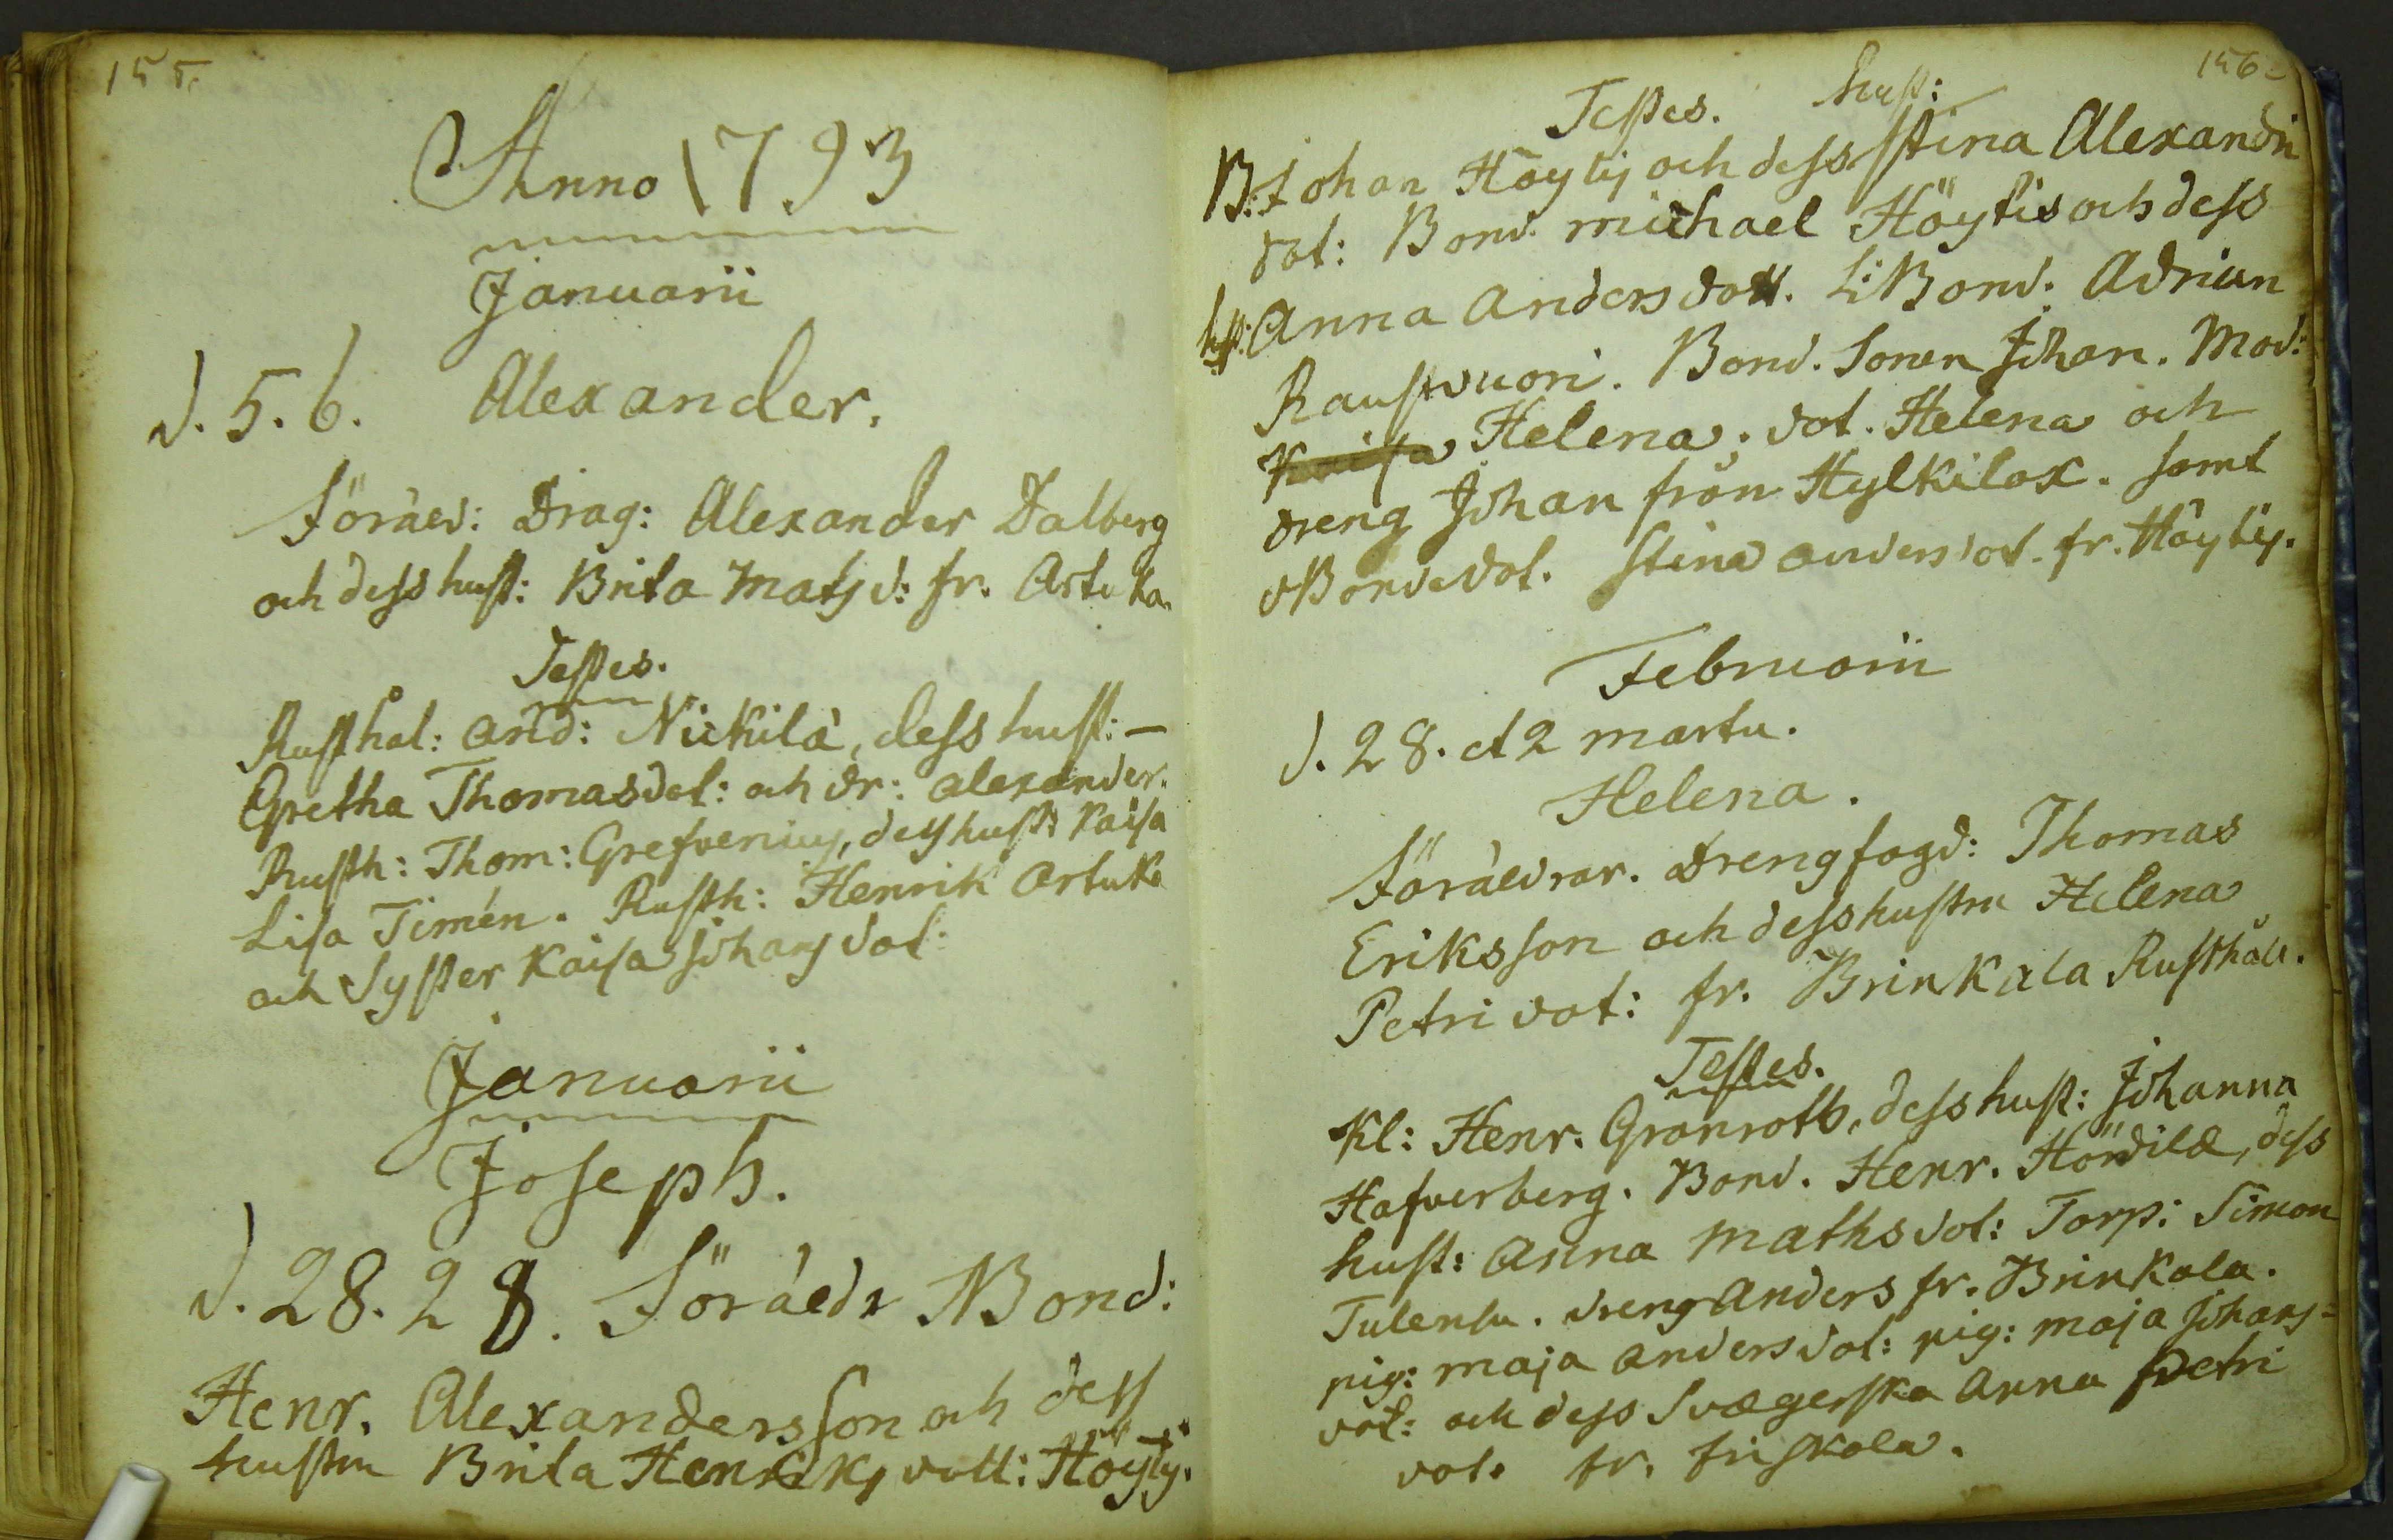 155.
Anno 1793
Januarii
d. 5. 6. Alexander.
Föräld: Drag: Alexander Dalberg
och dess hust: Brita Mats d: fr. Artuka.
Testes.
Rusthål: And: Nickilä, dess hust: –
Gretha Thomasdot: och dr: Alexander.
Rusth: Thom: Grefvenius, dess hust: Kaisa
Lisa Timén. Rusth: Henrik Artuka
och Syster Kaisa Johans dot:
Januarii
Joseph.
d. 28. 28. Föräldr Bond:
Henr. Alexandersson och dess
hustru Brita Henriks dott: Höyty.
156.
Testes. hust:
B: Johan Höytij och dess Stina Alexandri
dot: Bond. Michael Höytis och dess
hust: Anna Anders dott. Bond. Adrian
Raustvuori. Bond. Sonen Johan. Mod:
Kaisa Helena; dot. Helena och
dreng Johan från Hylkilax. samt
Bondedot. Stina Andersdot. fr. Höytis.
Februarii
d. 28. et 2 martii.
Helena.
Föräldrar. Drengfogd: Thomas
Eriksson och dess hustru Helena
Petri dot: fr. Brinkala Rusthåll.
Testes.
Kl: Henr. Granroth, dess hust: Johanna
Hafverberg. Bond. Henr. Hördilä, dess
hust: Anna Maths dot: Torp: Simon
Tulensu. dreng Anders fr. Brinkala.
pig: Maja Anders dot: pig: Maja Johans=
dot: och dess Svägerska Anna Petri
dot. fr. Friskala.